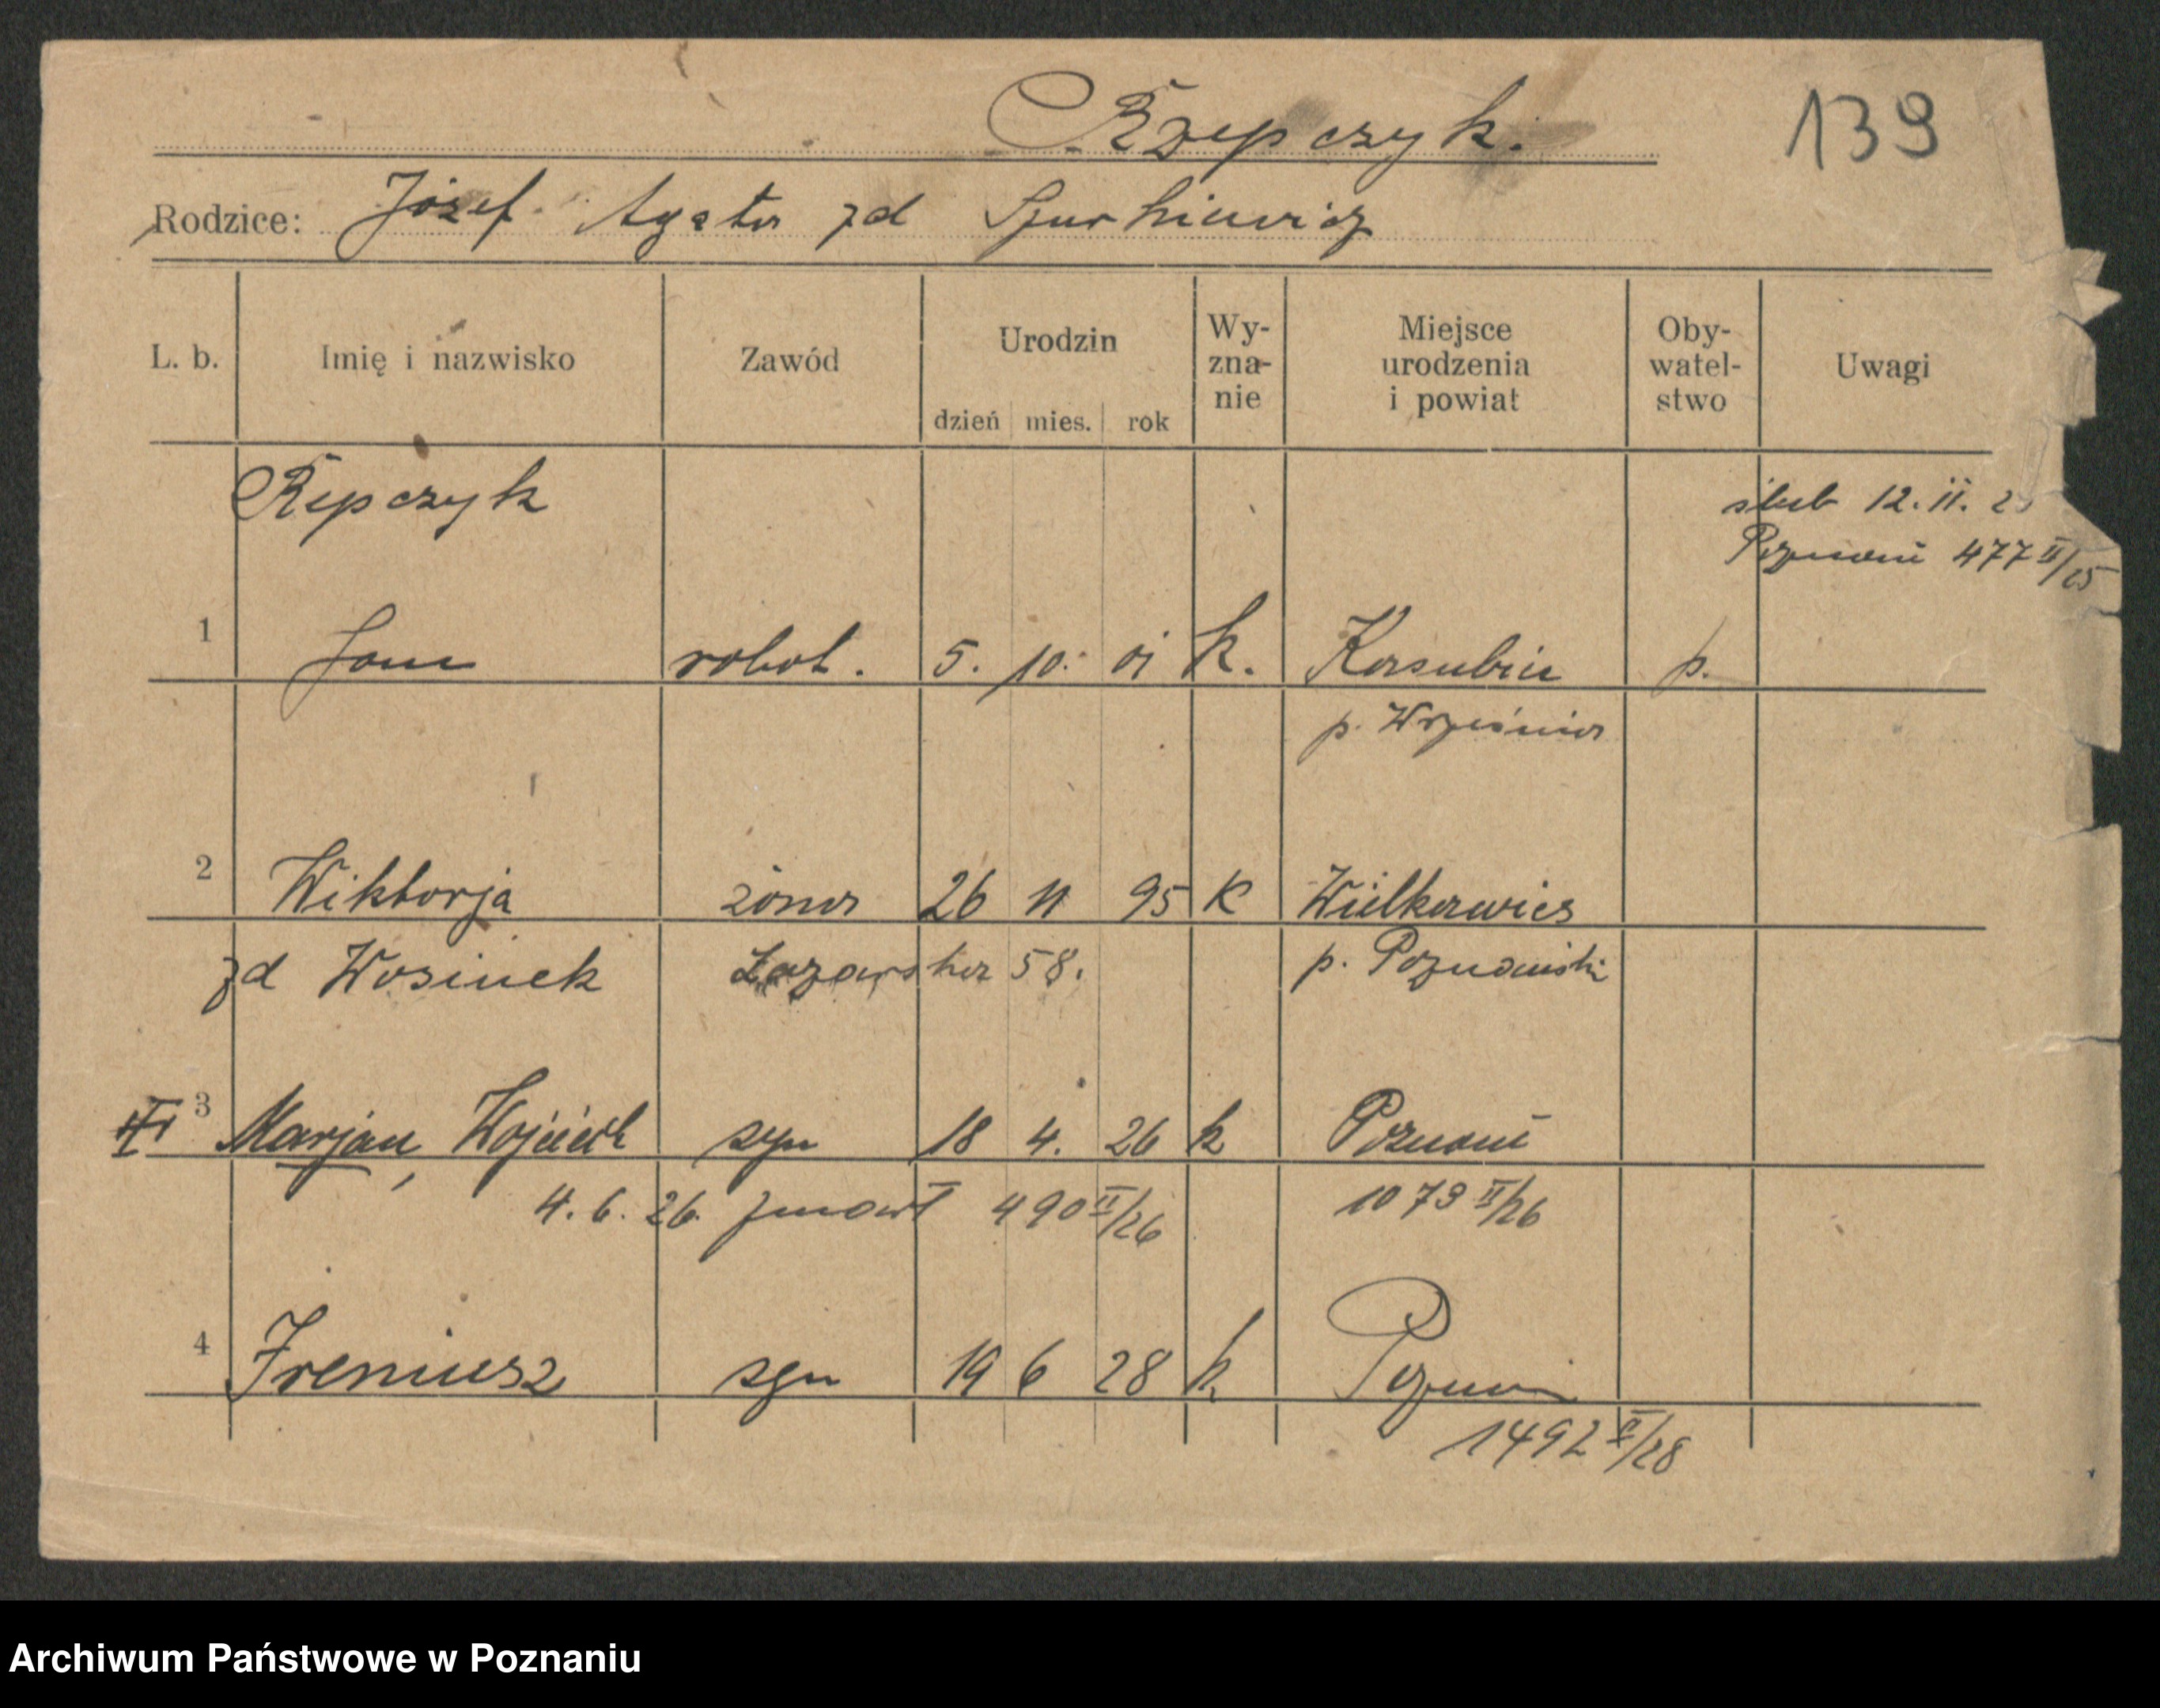 Rzepczyk.
139
Rodzice: Józef Agata zd
L. b. Imię i nazwisko Zawód Urodzin dzień mies. rok Wy-zna-nie Miejsce urodzenia i powiat Oby-watel-stwo Uwagi
Repczyk
ślub 12. 11.
Poznań 477 II/25
1 Jan robot. 5. 10. 01 k. p.
p. Września
2 Wiktorja żona 26 11 95 K
zd Wosinek Łazarska 58. p. Poznański
3 Marjan, Wojciech syn 18 4. 26 k Poznań
4. 6. 26. zmarł 490 II/26 1073 II/26
4 Ireniusz syn 19 6 28 k Poznań
1492 II/28
Archiwum Państwowe w Poznaniu